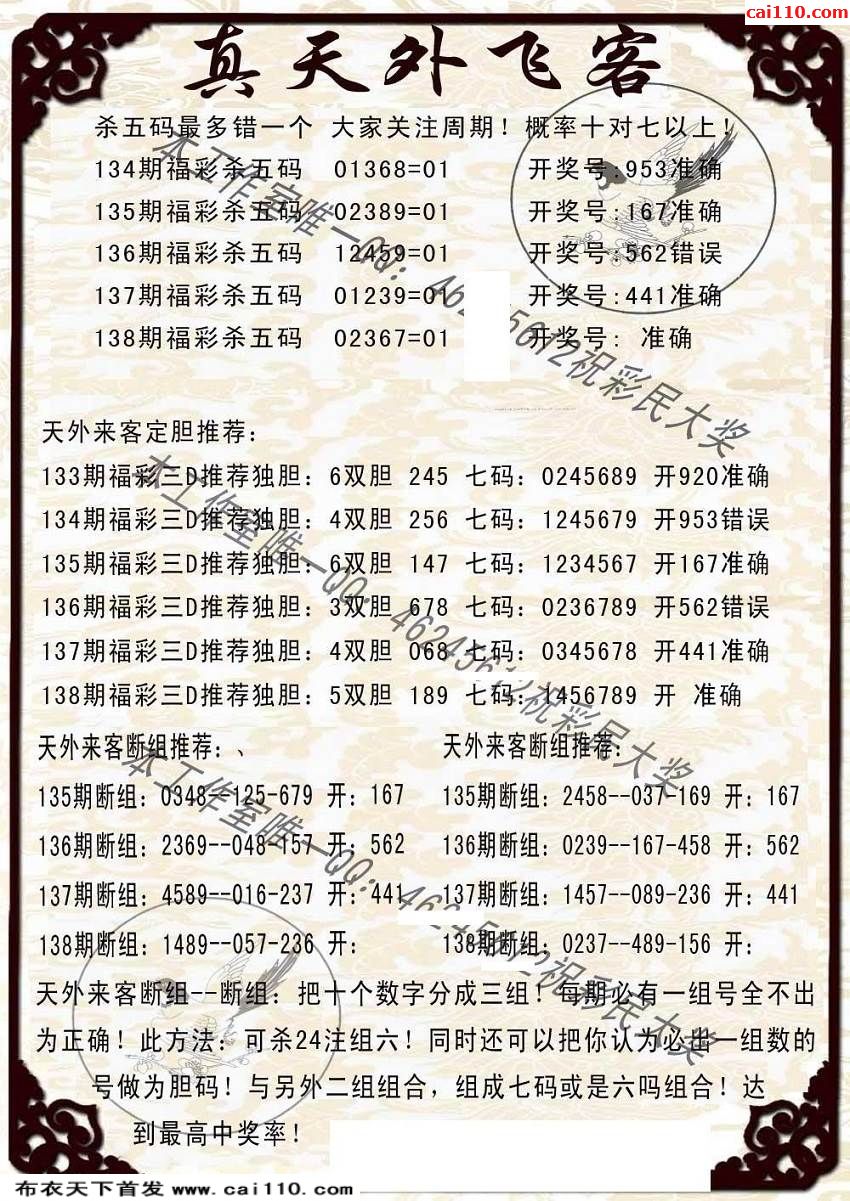 cai110.com
真天外飞客
杀五码最多错一个 大家关注周期！概率十对七以上！
134期福彩杀五码 01368=01 开奖号:953准确
135期福彩杀五码 02389=01 开奖号:167准确
136期福彩杀五码 12459=01 开奖号:562错误
137期福彩杀五码 01239=01 开奖号:441准确
138期福彩杀五码 02367=01 开奖号: 准确
天外来客定胆推荐：
133期福彩三D推荐独胆：6双胆 245 七码：0245689 开920准确
134期福彩三D推荐独胆：4双胆 256 七码：1245679 开953错误
135期福彩三D推荐独胆：6双胆 147 七码：1234567 开167准确
136期福彩三D推荐独胆：3双胆 678 七码：0236789 开562错误
137期福彩三D推荐独胆：4双胆 068 七码：0345678 开441准确
138期福彩三D推荐独胆：5双胆 189 七码：1456789 开 准确
天外来客断组推荐：、 天外来客断组推荐：
135期断组：0348--125-679 开：167 135期断组：2458--037-169 开：167
136期断组：2369--048-157 开：562 136期断组：0239--167-458 开：562
137期断组：4589--016-237 开：441 137期断组：1457--089-236 开：441
138期断组：1489--057-236 开： 138期断组：0237--489-156 开：
天外来客断组--断组：把十个数字分成三组！每期必有一组号全不出
为正确！此方法：可杀24注组六！同时还可以把你认为必出一组数的
号做为胆码！与另外二组组合，组成七码或是六吗组合！达
到最高中奖率！
本工作室唯一QQ：46245612祝彩民大奖
本工作室唯一QQ：46245612祝彩民大奖
本工作室唯一QQ：46245612祝彩民大奖
布衣天下首发 www.cai110.com